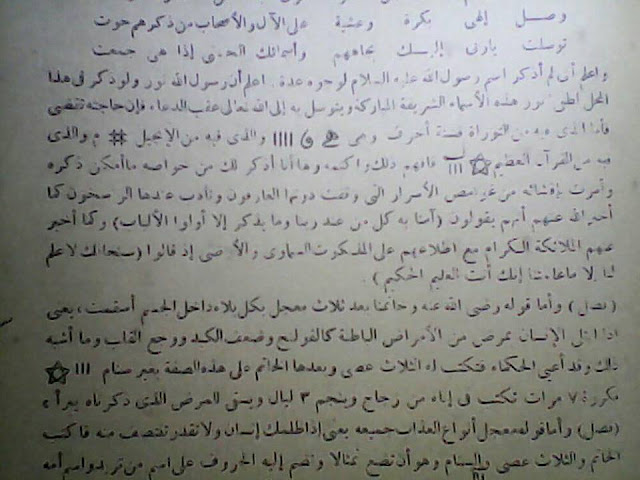 وصل إلهي بكرة وعشية على الآل والأصحاب من ذكرهم حوت
توسلت ياربى إليك بجاههم وأسمائك الحسنى إذا هى جمعت
واعلم أنى لم أذكر اسم رسول الله عليه السلام لوجوه عدة . اعلم أن رسول الله نور ولو ذكر فى هذا
المحل نور هذه الأسماء الشريفة المباركة ويتوسل به إلى الله تعالى عقب الدعاء فإن حاجته تقضى
فأما الذى فيه من التوراة فستة أحرف وهى IIII والذى فيه من الإنجيل # م والذى
فيه من القرآن العظيم ☆ III فافهم ذلك واكتمه وها أنا أذكر لك من خواصه ما أمكن ذكره
وأمرت بإفشائه من غير غامض الأسرار التى وقفت دونها العارفون وتأدب عندها الراسخون كما
أخبر الله عنهم أنهم يقولون (آمنا به كل من عند ربنا وما يذكر إلا أولوا الألباب) وكما أخبر
عنهم الملائكة الكرام مع اطلاعهم على الملكوت السماوى والأرضى إذ قالوا (سبحانك لا علم
لنا إلا ما علمتنا إنك أنت العليم الحكيم) .
(فصل) وأما قوله رضى الله عنه وخاتمنا بعد ثلاث معجل بكل بلاء داخل الجسم أسقمت ، يعنى
إذا ابتلى الإنسان بمرض من الأمراض الباطنة كالقولنج وضعف الكبد ووجع القلب وما أشبه
ذلك وقد أعيى الحكماء فتكتب له الثلاث عصى وبعدها الخاتم على هذه الصفة بغير سنام III ☆
مكررة ٧ مرات تكتب فى إناء من زجاج وينجم ٣ ليال ويسقى المرض الذى ذكرناه يبرأ ء
(فصل) وأما قوله معجل أنواع العذاب جميعه يعنى إذا ظلمك إنسان ولا تقدر تنتصف منه فاكتب
الخاتم والثلاث عصى والسنام وهو أن تصنع تمثالا وتضم إليه الحروف على اسم من تريد واسم أمه